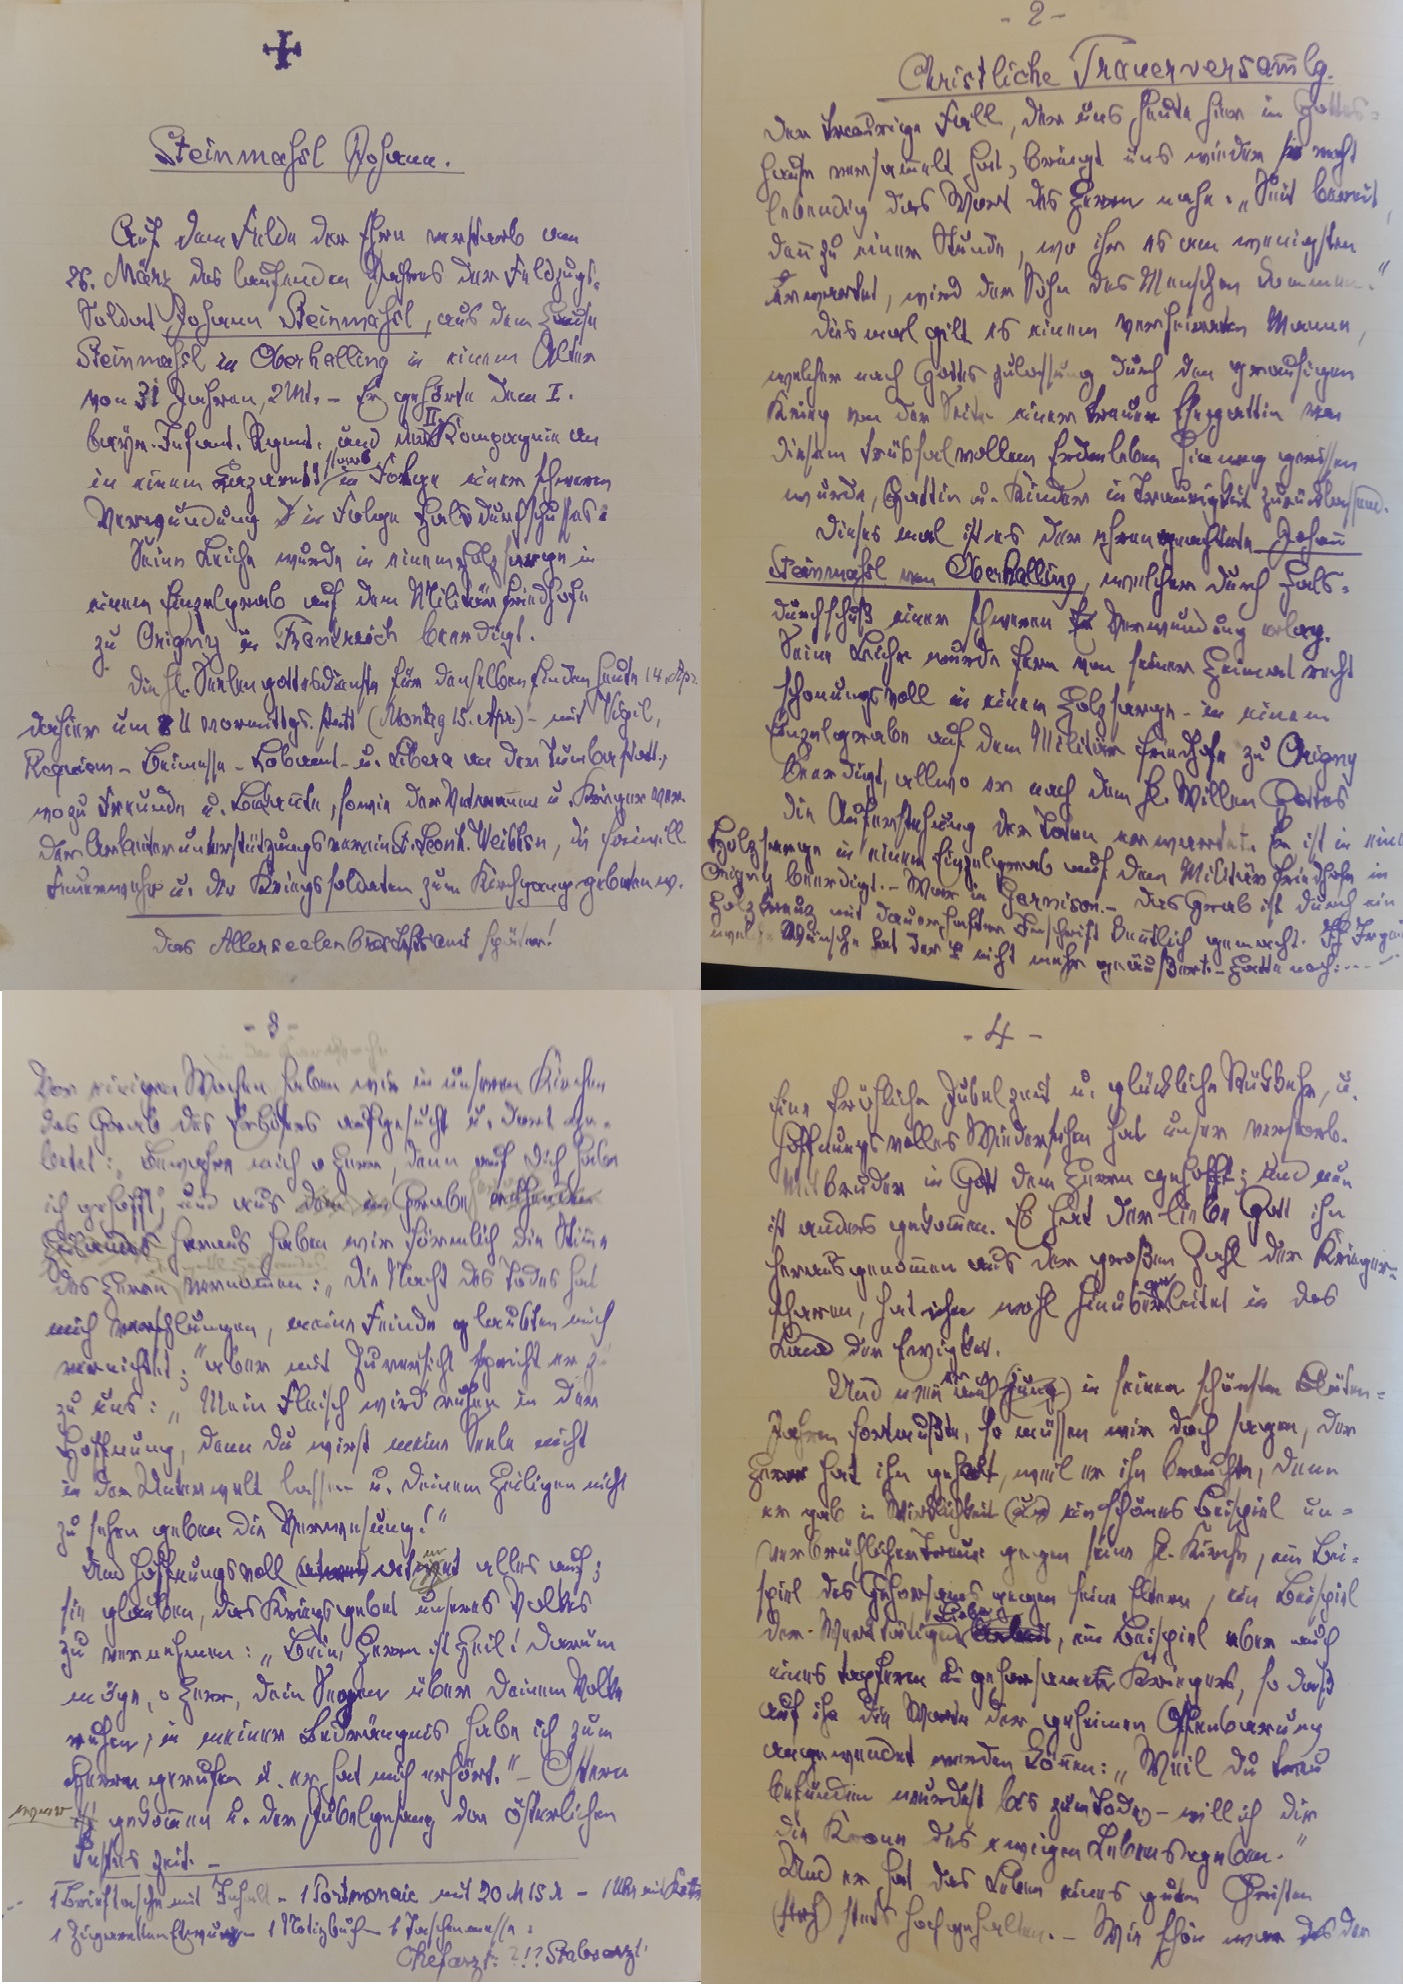 Steinmaßl Johann.
Auf dem Felde der Ehre verstarb am
26. März des laufenden Jahres der Feldzugs-
Soldat Johann Steinmaßl, aus dem Hause
Steinmaßl in Oberhalling in einem Alter
von 31 Jahren, 2 Mt. – Er gehörte dem I.
bayr. Infant. Regmt. und der II Kompagnie an
in einem Lazarett starb in Folge einer schweren
Verwundung in Folge Halsdurchschusses.
Seine Leiche wurde in einem Holzsarge in
einem Einzelgrab auf dem Militärfriedhofe
zu Origny in Frankreich beerdigt.
Die hl. Seelengottesdienste für denselben finden heute 14. Apr.
dahier um 8 U vormittgs. statt (Montag 15. Apr.) – mit Vigil,
Requiem – Beimesse – Lobamt – u. Libera an der Tumba statt,
wozu Freunde u. Bekannte, sowie der Veteranen u. Krieger Ver.
der Arbeiterunterstützungsverein St. Leonh. die freiwill.
Feuerwehr u. die Kriegssoldaten zum Kirchgang gebeten w.
das Allerseelen später!
- 2 -
Christliche Trauerversam̄lg.
Der traurige Fall, der uns heute hier im Gottes-
hause versam̄elt hat, bringt uns wieder so recht
lebendig das Wort des Herrn nahe: „Seid bereit,
den̄ zu einer Stunde, wo ihr es am wenigsten
erwartet, wird der Sohn des Menschen kommen."
Diesmal gilt es einem verheirateten Manne,
welcher nach Gottes Zulassung durch den grausigen
Krieg von der Seite einer treuen Ehegattin von
diesem trübsalvollen Erdenleben hinweg gerissen
wurde, Gattin u. Kinder in Traurigkeit zurücklassend.
Dieses mal ist es der ehrengeachtete Johan̄
Steinmaßl von Oberhalling, welcher durch Hals-
durchschuß einer schweren Verwundung erlag.
Seine Leiche wurde fern von seiner Heimat recht
schonungsvoll in einem Holzsarge – in einem
Einzelgrabe auf dem Militär friedhofe zu Origny
beerdigt, allwo er nach dem hl. Willen Gottes
die Auferstehung der Toten erwartet. Er ist in einem
Holzsarge in einem Einzelgrab auf dem Militärfriedhofe in
Origny beerdigt. – War in Garnison. – Das Grab ist durch ein
Holzkreuz mit dauerhafter Inschrift kenntlich gemacht.
Wünsche hat der nicht mehr geäußert. – Hatte noch: ----
- 3 -
Vor einigen Wochen haben wir in unseren Kirchen
das Grab des Erlösers aufgesucht u. dort ge-
betet: „Bewahre mich o Herr, denn auf Dich habe
ich gehofft; und aus dem Grabe
heraus haben wir förmlich die Stim̄e
des Herrn vernom̄en: „Die Nacht des Todes hat
mich verschlungen, meine Feinde glaubten mich
vernichtet;" aber mit Zuversicht spricht er
zu uns: „Mein Fleisch wird ruhen in der
Hoffnung, denn du wirst meine Seele nicht
in der Unterwelt lassen u. deinem Heiligen nicht
zu sehen geben die Verwesung!"
Und hoffnungsvoll atmet alles auf;
sie glauben, das Kriegsgebet unseres Volkes
zu vernehmen: „Beim Herrn ist Heil! darum
möge, o Herr, dein Segen über deinem Volke
ruhen; in meiner Bedrängnis habe ich zum
Herrn gerufen u. er hat mich erhört." – Ostern
ist gekom̄en u. der Jubelgesang der österlichen
Festes zeit. –
1 Brieftasche mit Inhalt – 1 Portmonaie mit 20 M 15 ₰ – 1 Uhr mit Kette
1 Zigaretten Etui – 1 Notizbuch – 1 Taschenmesser
Chefarzt: ?!? Stabsarzt!
- 4 -
Eine fröhliche Jubelzeit u. glückliche Rückkehr, u.
hoffnungsvolles Wiedersehen hat unser verstorb.
Mitbruder in Gott dem Herrn gehofft; und nun
ist anders gekom̄en. Es hat der liebe Gott ihn
herausgenom̄en aus der großen Zahl der Krieger-
scharen, hat ihn wohl hinübergeleitet in das
Land der Ewigkeit.
Und wenn er auch (jung) in seinen schönsten Blüten-
Jahren fortmußte, so müssen wir doch sagen, der
Herr hat ihn geholt, weil er ihn brauchte, denn
er gab in Wirklichkeit ein schönes Beispiel un-
verbrüchlicher Treue gegen seine hl. Kirche, ein Bei-
spiel des Gehorsams gegen seine Eltern, ein Beispiel
der Werktätigen Liebe, ein Beispiel aber auch
eines tapferen gehorsamen Kriegers, so daß
auf ihn die Worte der geheimen Offenbarung
angewendet werden kön̄en: „Weil du treu
befunden wurdest bis zum Tode – will ich dir
die Krone des ewigen Lebens geben."
Und er hat das Leben eines guten Christen
stets hochgehalten. – Wie schön war das der